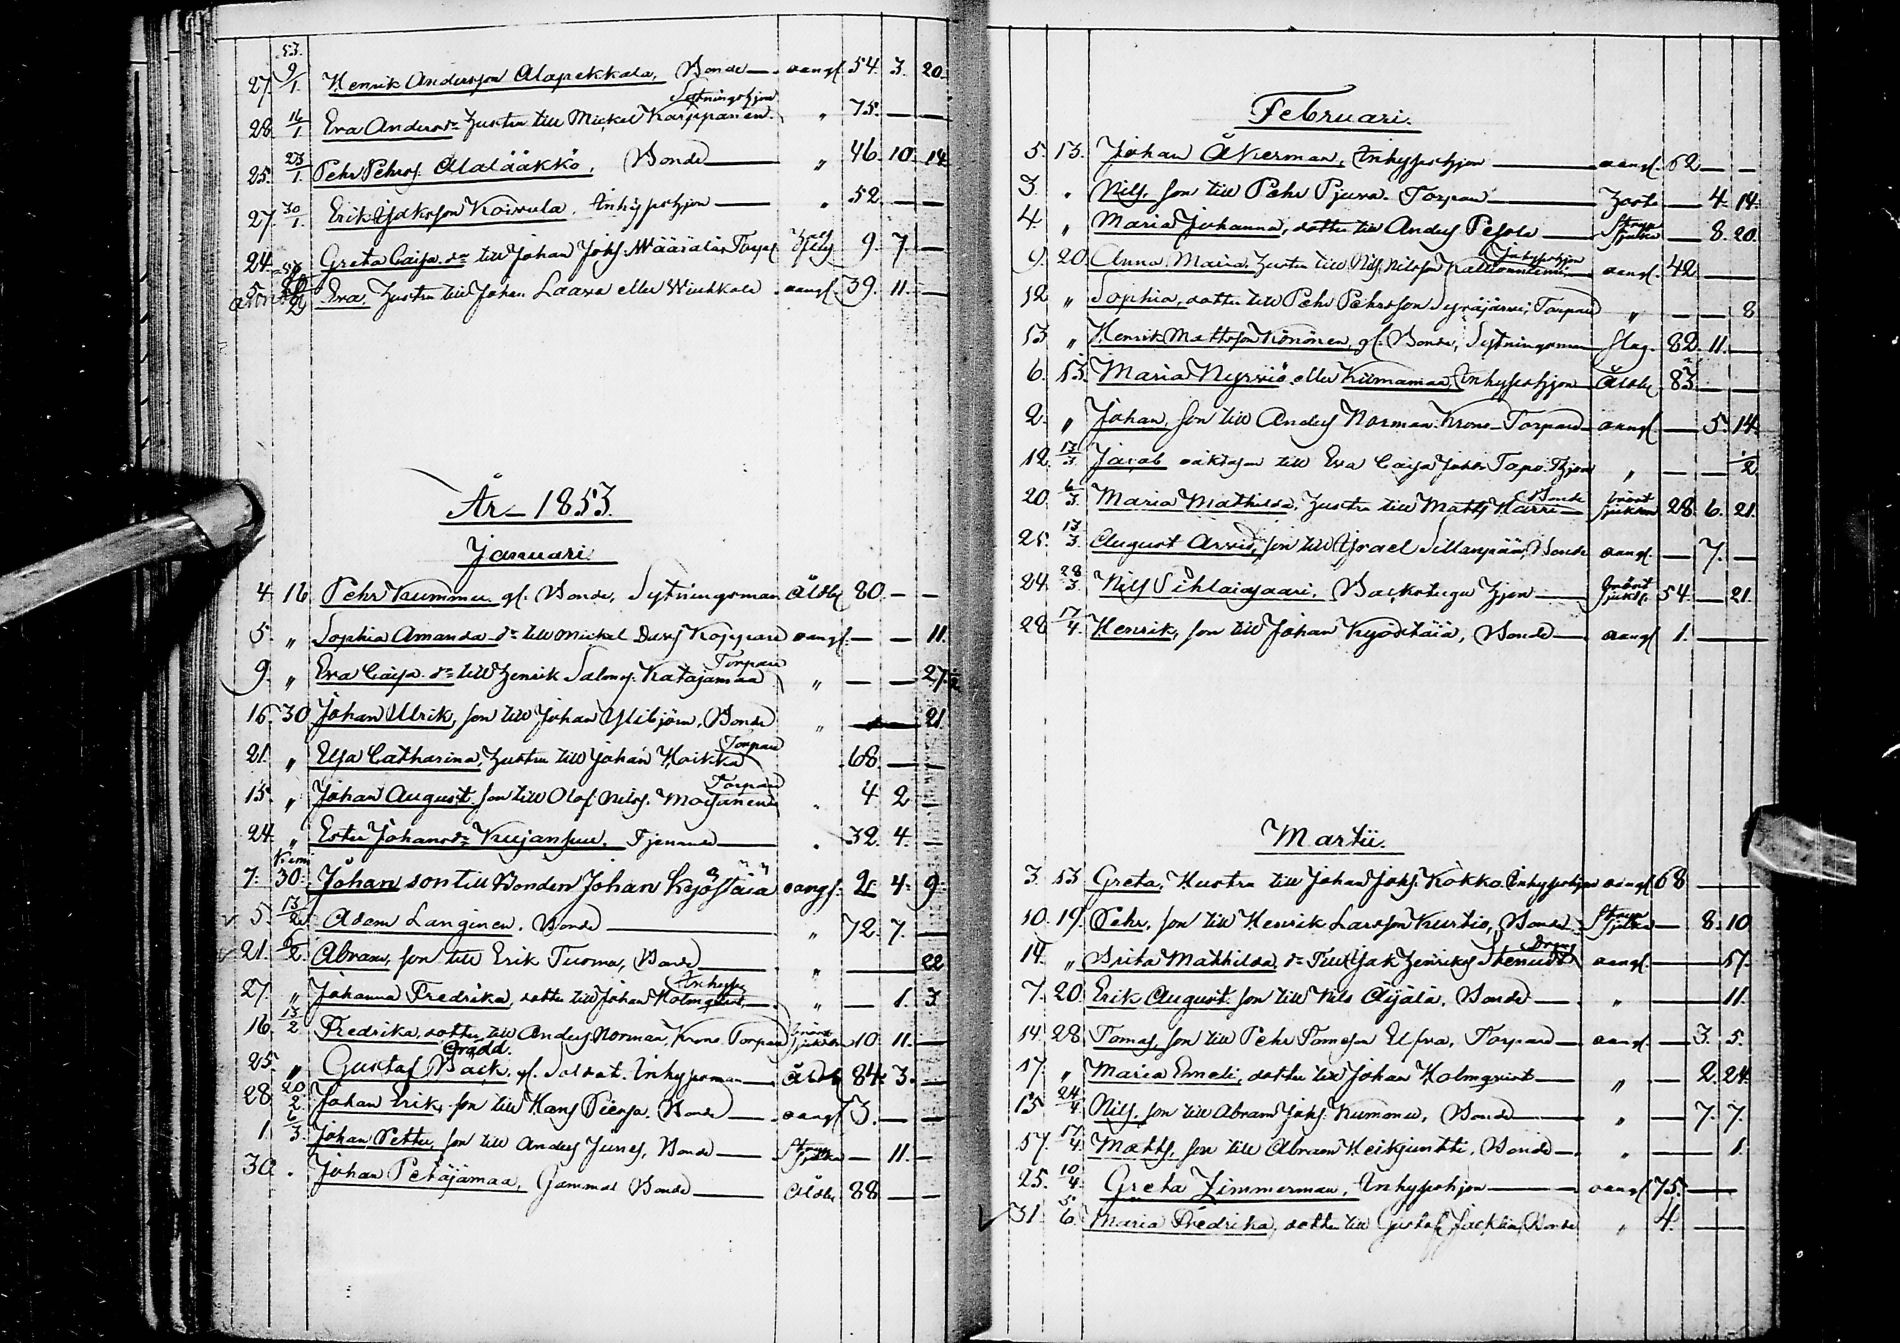 53.
27. 9/1. Henrik Andersson Alapekkala, Bonde — oangf. 54. 3. 20.
Sytningshjon
28. 16/1. Eva Andersdr Hustru till Mickel Karppanen. " 75. — —
25. 23/1. Pehr Pehrss. Alalääkkö, Bonde — " 46. 10. 14
27. 30/1. Erik Isaksson Koivula, Inhyseshjon — " 52. — —
24. Greta Caisa dr till Johan Johss. Määrälä 9. 7. —
5. Eva, Hustru till Johan Laava eller Wiuhkola oangf. 39. 11. —
År 1853.
Januari.
4. 16. Pehr Kummu gl. Bonde, Sytningsman Åldb. 80. — —
5. " Sophia Amanda dr till Mickel Koppari oangf. — — 11.
Torpare
9. " Eva Caisa dr till Henrik Saloms. Katajamaa " — — 27.
16. 30. Johan Ulrik, son till Johan Ylibjörn, Bonde " — 21.
Torpare
21. " Elsa Catharina, Hustru till Johan Hoikka 68. — —
Torpare
15. " Johan August son till Olof Nilss. Moisanen " 4. 2. —
24. " Ester Johansdr Kujansuu, Tjenande " 32. 4. —
Kemi
7. 30. Johan son till Bonden Johan Kyöstäjä oangf. 2. 4. 9.
5. 13/2. Adam Langinen, Bonde — " 72. 7. —
21. 6/2. Abram, son till Erik Tuoma, Bonde — " — 22
Inhyses
27. " Johanna Fredrika, dotter till Johan Holmqvist, — " — 1. 3.
16. 13/2. Fredrika, dotter till Anders Norman, Krono Torpare 10. 11. —
Gradd.
25. " Gustaf Back, gl. Soldat. Inhysesman — Åldb. 84. 3. —
28. 20/2. Johan Erik, son till Hans Piersa, Bonde — oangf. 3. — —
1. 6/3. Johan Petter, son till Anders Junes, Bonde — — 11. —
30. " Johan Petäjämaa, Gammal Bonde — Åldb. 88 — —
Februari.
5. 13. Johan Åkerman, Inhyseshjon — oangf. 62 — —
3. " Nils, son till Pehr Pjura, Torpare — — 4. 14.
4. " Maria Johanna, dotter till Anders Pesola — — 8. 20.
Inhyseshjon
9. 20. Anna Maria Hustru till Nils Nilsson oangf. 42. — —
12. " Sophia, dotter till Pehr Pehrsson Torpare " — — 8.
13. " Henrik Mattsson Könönen, gl. Bonde, Sytningsman Slag. 82. 11. —
6. 13. Maria Nyrviö eller Kiimamaa, Inhyseshjon Åldb. 83. — —
2. " Johan, son till Anders Norman Krono Torpare oangf. — 5. 14.
12. 13/3. Jacob oäkta son till Eva Caisa " — — 1/2
Bonde
20. 6/3. Maria Mathilda, Hustru till Matts Harri — Bröstsjukdom 28. 6. 21.
25. 13/3. August Arvid, son till Israel Sillanpää, Bonde oangf. — 7. —
24. 28/3. Nils Sihlaigaari, Backstugu Hjon — Bröstsjukd. 54. — 21.
28. 17/4. Henrik, son till Johan Kyöstäjä, Bonde — oangf. 1. — —
Martii.
3. 13. Greta, Hustru till Johan Johss. Kokko Inhyseshjon oangf. 68 — —
10. 19. Pehr, son till Henrik Larsson Kurtio, Bonde — — 8. 10.
Dräng
14. " Brita Mathilda, dr till Isak Henrikss. Stenudd oangf. — — 17.
7. 20. Erik August son till Nils Äijälä, Bonde — " — — 11.
14. 28. Tomas, son till Pehr Tomasson Elfva, Torpare — oangf. — 3. 5.
17. " Maria Emeli, dotter till Johan Holmqvist — " — 2. 24.
15. 24/4. Nils, son till Abram Johss. Kumonen, Bonde — " — 7. 7.
17. 17/4. Matts, son till Abram Heikjuntti, Bonde — " — — 1.
25. 10/4. Greta Zimmerman, Inhyseshjon — oangf. 75. — —
31. 5/6. Maria Fredrika, dotter till Gustaf Jacklin, Bonde " 4. — —